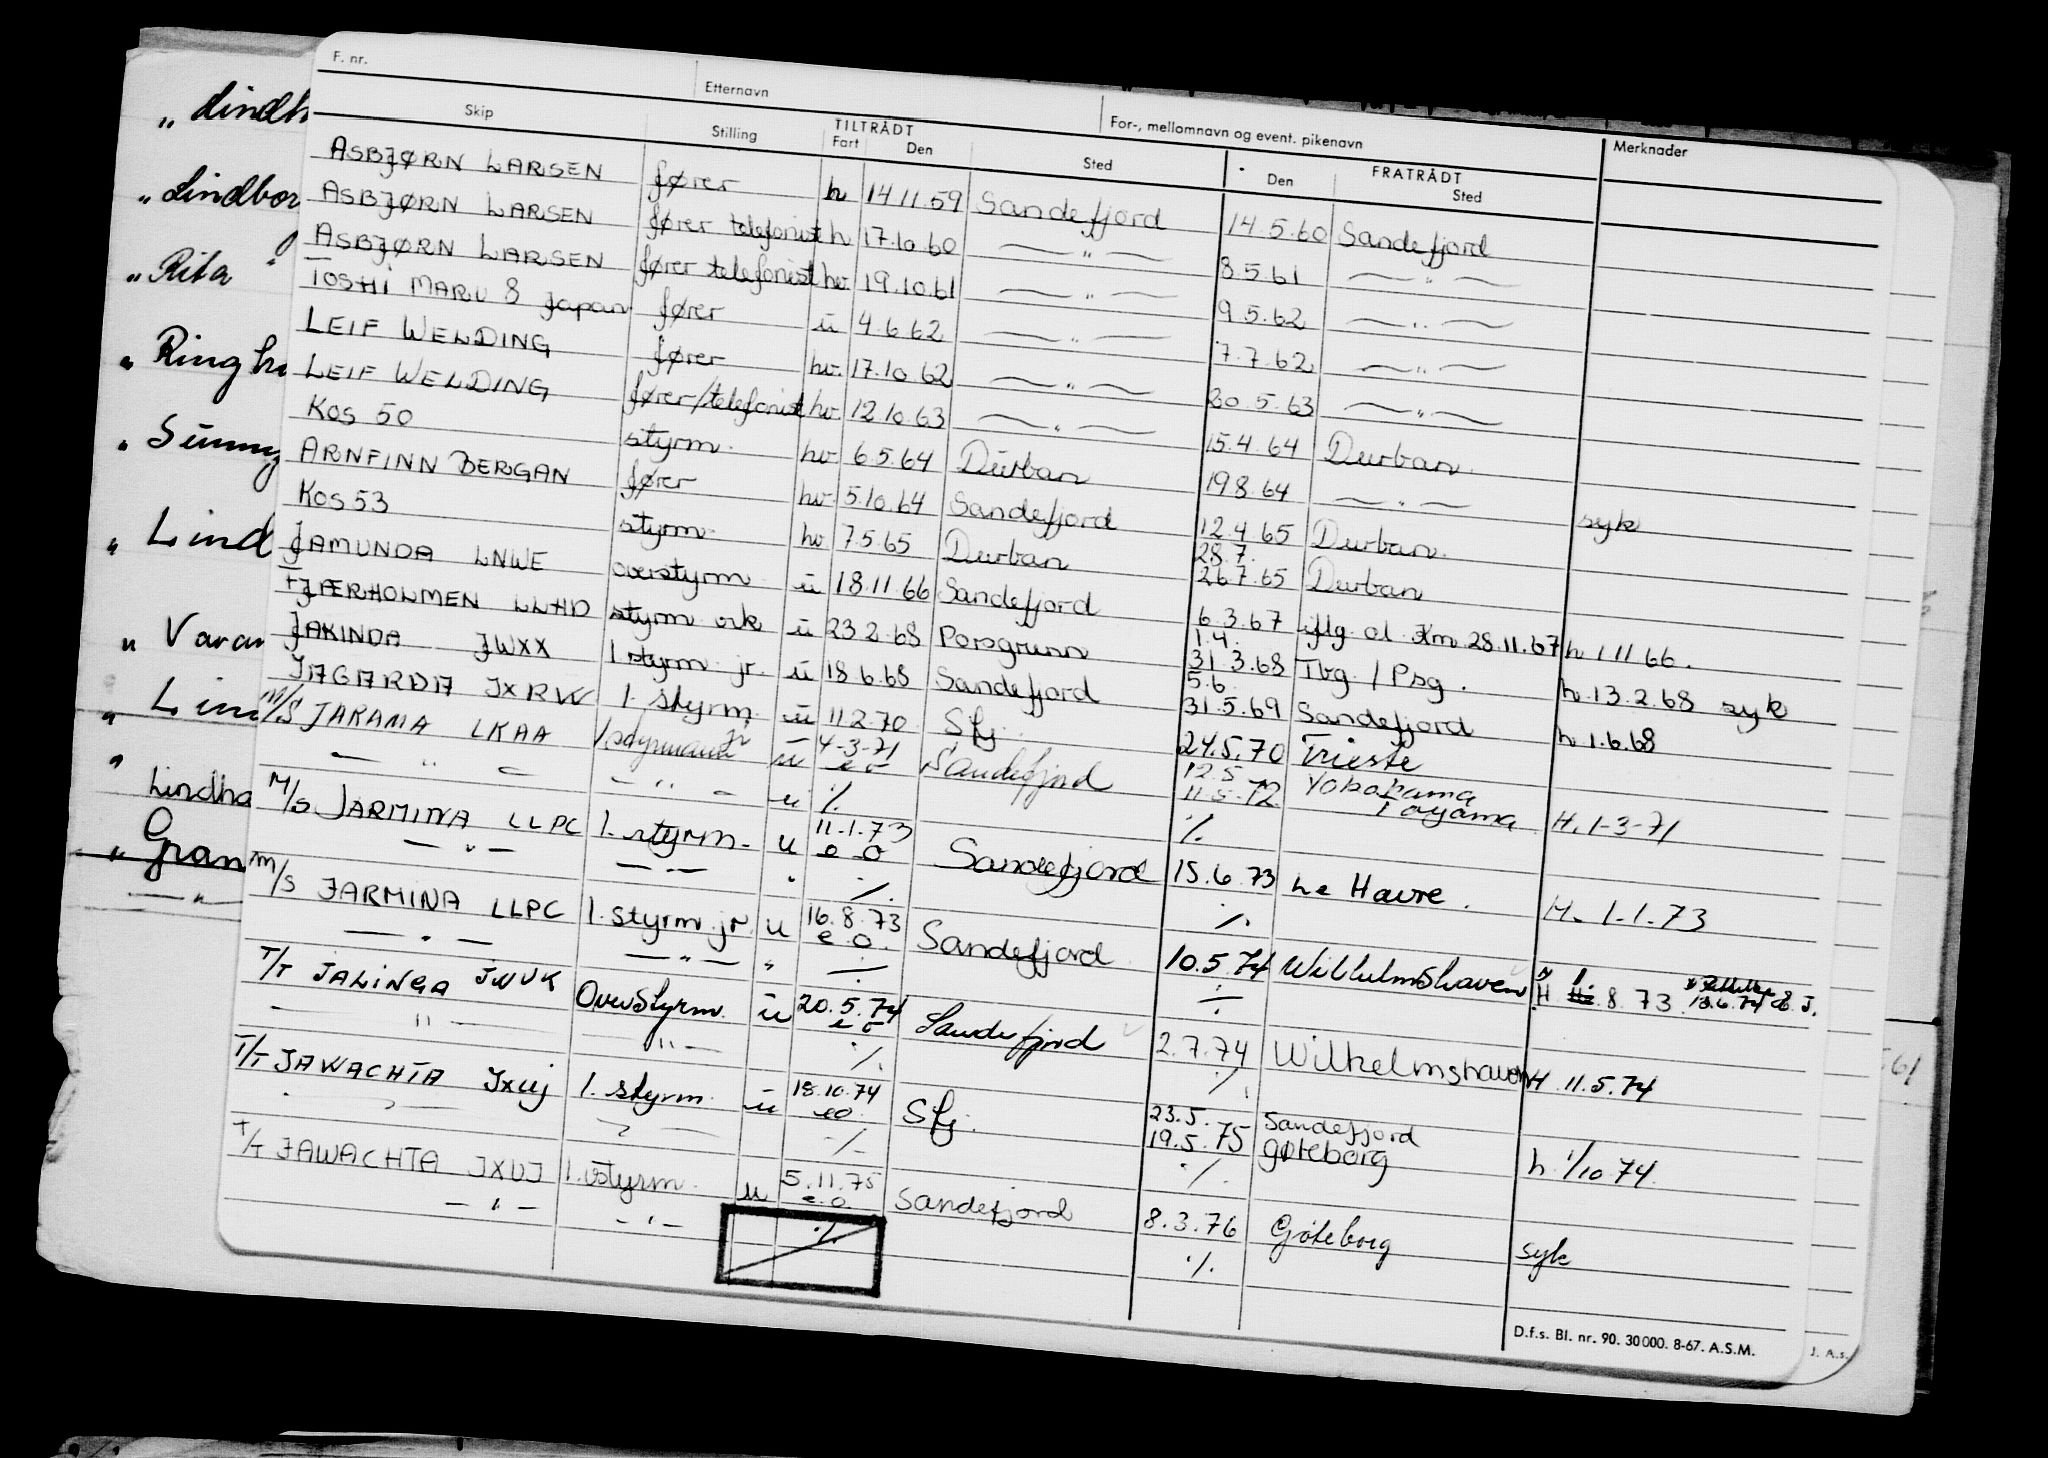 F. nr.
Etternavn
For-, mellomnavn og event. pikenavn
Merknader
Skip Stilling TILTRÅDT Fart Den Sted FRATRÅDT Den Sted
ASBJØRN LARSEN fører h 14.11.59 Sandefjord 14.5.60 Sandefjord
ASBJØRN LARSEN fører telefonist h 17.10.60 — " — 8.5.61 — " —
ASBJØRN LARSEN fører telefonist hv. 19.10.61 — " — 9.5.62 — " —
TOSHI MARU 8 Japan fører u 4.6.62 — " — 7.7.62 — " —
LEIF WELDING fører hv. 17.10.62 — " — 20.5.63 — " —
LEIF WELDING fører/telefonist hv. 12.10.63 — " — 15.4.64 Durban
KOS 50 styrm. hv 6.5.64 Durban 19.8.64 — " — syk
ARNFINN BERGAN fører hv 5.10.64 Sandefjord 12.4.65 Durban
KOS 53 styrm. hv 7.5.65 Durban 28.7. 26.7.65 Durban
JAMUNDA LNWE overstyrm u 18.11.66 Sandefjord 6.3.67 iflg. ol. Km 28.11.67 h 1 11 66.
TJÆRHOLMEN LLHD styrm vik u 23.2.68 Porsgrunn 1.4. 31.3.68 Tbg. / Psg. h. 13.2.68 syk
JAKINDA JWXX 1 styrm jr. u 18.6.68 Sandefjord 5.6. 31.5.69 Sandefjord h 1.6.68
JAGARDA JXRW 1. styrm. u 11.2.70 Sfj. 24.5.70 Trieste
M/S JARAMA LKAA 1 styrmann jr u 4-3-71 e o Sandefjord 12.5 11.5.72 Yokohama Toyama H. 1-3-71
— " — — " — u ./. ./.
M/S JARMINA LLPC 1. styrm. u 11.1.73 e o Sandefjord 15.6.73 Le Havre. H. 1.1.73
— " — — — . ./. ./.
M/S JARMINA LLPC 1. styrm. jr. u 16.8.73 e o. Sandefjord 10.5.74 Wilhelmshaven H 8.73 18.6.74 J.
— " — — " — " ./. ./.
T/T JALINGA JWUK Overstyrm. u 20.5.74 e o Sandefjord 2.7.74 Wilhelmshaven H 11.5.74
— " — " — ./. ./.
T/T JAWACHTA JXUJ 1. styrm. u 18.10.74 eo. Sfj. 23.5. 19.5.75 Sandefjord Gøteborg h 1/10 74.
./. ./.
T/T JAWACHTA JXUJ 1. styrm. u 5.11.75 e.o. Sandefjord 8.3.76 Gøteborg syk
— " — — " — ./. ./.
D.f.s. Bl. nr. 90. 30000. 8-67. A.S.M.
J. A.s.
61
" Lindh
" Lindbor
" Rita "
" Ringh
" Lind
" Varan
" Lin
"
Lindha
" Gran
— " —